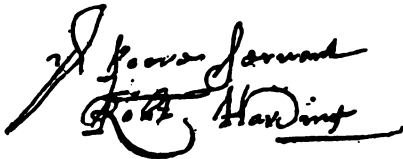 yr poore servant
Robt Harding